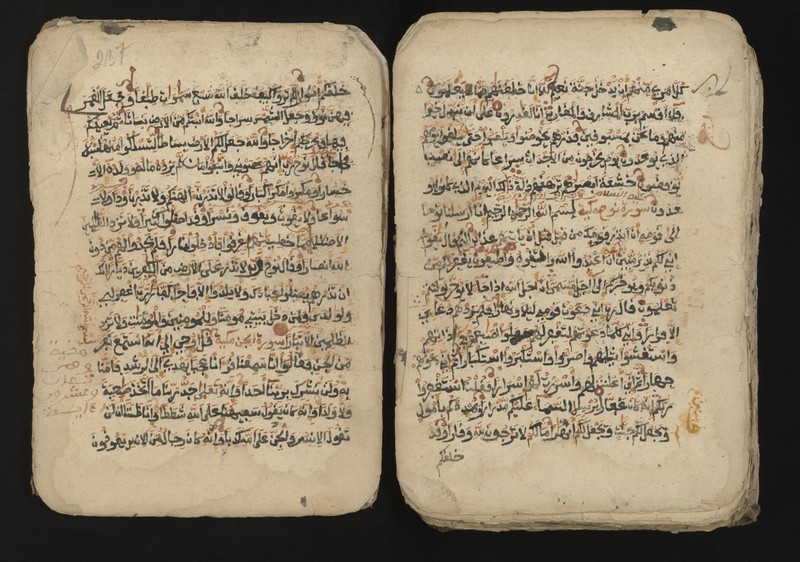 كل امرئ منهم ان يدخل جنة نعيم كلا انا خلقنهم مما يعلمون
فلا اقسم برب المشرق والمغرب انا لقدرون على ان نبدل خيرا
منهم وما نحن بمسبوقين فذرهم يخوضوا ويلعبوا حتى يلقوا يومهم
الذي يوعدون يوم يخرجون من الاجداث سراعا كانهم الى نصب
يوفضون خشعة ابصرهم ترهقهم ذلة ذلك اليوم الذي كانوا يو
عدون سورة نوح مكية بسم الله الرحمن الرحيم انا ارسلنا نوحا
الى قومه ان انذر قومك من قبل ان ياتيهم عذاب اليم قال يقوم
اني لكم نذير مبين ان اعبدوا الله واتقوه واطيعون يغفر لكم من
ذنوبكم ويوخركم الى اجل مسمى ان اجل الله اذا جا لا يوخر لو كنتم
تعلمون قال رب اني دعوت قومي ليلا ونهارا فلم يزدهم دعاي
الا فرارا واني كلما دعوتهم لتغفر لهم جعلوا اصبعهم في اذانهم
واستغشوا ثيابهم واصروا واستكبروا استكبارا ثم اني دعوتهم
جهارا ثم اني اعلنت لهم واسررت لهم اسرارا فقلت استغفروا
ربكم انه كان غفارا يرسل السماء عليكم مدرارا ويمددكم باموال
ويجعل لكم جنت ويجعل لكم انهرا ما لكم لا ترجون لله وقارا وقد
خلقكم
237
خلقكم اطوارا الم تروا كيف خلق الله سبع سموات طباقا وجعل القمر
فيهن نورا وجعل الشمس سراجا والله انبتكم من الارض نباتا ثم يعيدكم
فيها ويخرجكم اخراجا والله جعل لكم الارض بساطا لتسلكوا منها سبلا
فجاجا قال نوح رب انهم عصوني واتبعوا من لم يزده ماله وولده الا
خسارا ومكروا مكرا كبارا وقالوا لا تذرن الهتكم ولا تذرن ودا ولا
سواعا ولا يغوث ويعوق ونسرا وقد اضلوا كثيرا ولا تزد الظلمين
الا ضللا مما خطيتهم اغرقوا فادخلوا نارا فلم يجدوا لهم من دون
الله انصارا وقال نوح رب لا تذر على الارض من الكفرين ديارا انك
ان تذرهم يضلوا عبادك ولا يلدوا الا فاجرا كفارا رب اغفر لي
ولولدي ولمن دخل بيتي مومنا وللمومنين والمومنت ولا تزد
الظلمين الا تبارا سورة الجن مكية قل اوحي الي انه استمع نفر
من الجن فقالوا انا سمعنا قرانا عجبا يهدي الى الرشد فامنا
به ولن نشرك بربنا احدا وانه تعلى جد ربنا ما اتخذ صحبة
ولا ولدا وانه كان يقول سفيهنا على الله شططا وانا ظننا ان لن
تقول الانس والجن على الله كذبا وانه كان رجال من الانس يعوذون